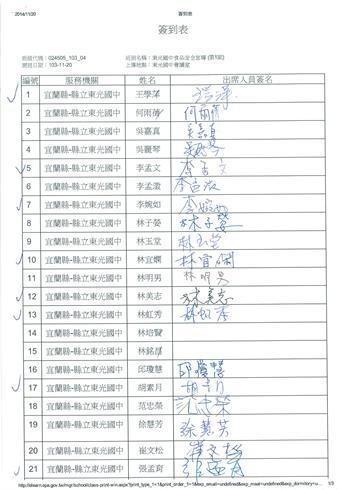 2014/11/20 簽到表
簽到表
班級代號：024505_103_04 班別名稱：東光國中食品安全宣導 (第1節)
開班日期：103-11-20 上課地點：東光國中會議室
編號 服務機關 姓名 出席人員簽名
1 宜蘭縣-縣立東光國中
2 宜蘭縣-縣立東光國中 何雨蒨 何雨蒨
3 宜蘭縣-縣立東光國中 吳嘉真 吳嘉真
4 宜蘭縣-縣立東光國中 吳麗琴
5 宜蘭縣-縣立東光國中 李孟文 李孟文
6 宜蘭縣-縣立東光國中 李孟澂
7 宜蘭縣-縣立東光國中 李婉如 李婉如
8 宜蘭縣-縣立東光國中 林子晏 林子晏
9 宜蘭縣-縣立東光國中 林玉堂 林玉堂
10 宜蘭縣-縣立東光國中 林宜嫻 林宜嫻
11 宜蘭縣-縣立東光國中 林明男 林明男
12 宜蘭縣-縣立東光國中 林美志 林美志
13 宜蘭縣-縣立東光國中 林虹秀 林虹秀
14 宜蘭縣-縣立東光國中 林培賢
15 宜蘭縣-縣立東光國中
16 宜蘭縣-縣立東光國中 邱瓊慧 邱瓊慧
17 宜蘭縣-縣立東光國中 胡素月 胡素月
18 宜蘭縣-縣立東光國中 范忠榮 范忠榮
19 宜蘭縣-縣立東光國中 徐慧芳 徐慧芳
20 宜蘭縣-縣立東光國中 崔文松 崔文松
21 宜蘭縣-縣立東光國中 張孟育
1/3